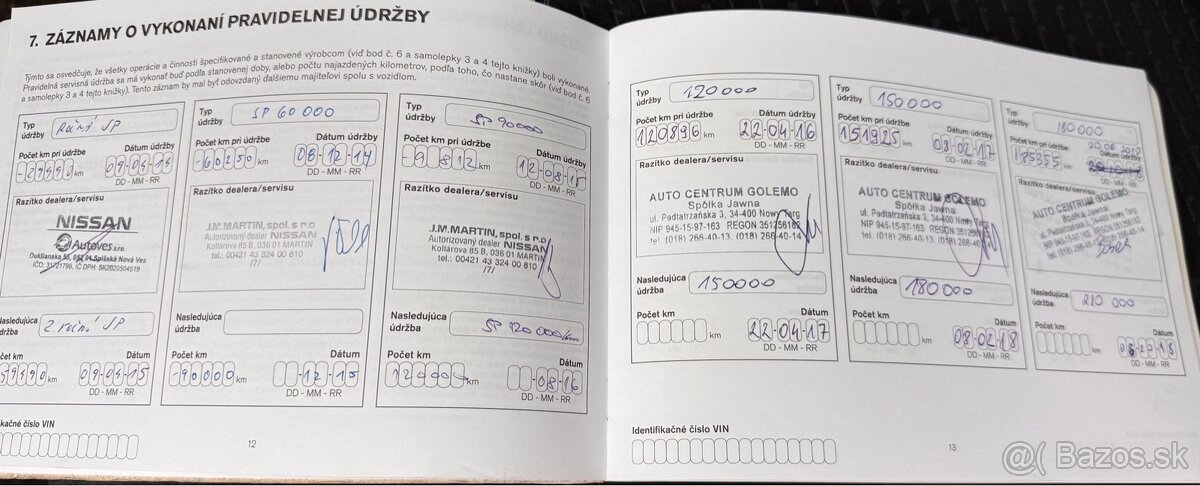 7. ZÁZNAMY O VYKONANÍ PRAVIDELNEJ ÚDRŽBY
Týmto sa osvedčuje, že všetky operácie a činnosti špecifikované a stanovené výrobcom (viď bod č. 6 a samolepky 3 a 4 tejto knižky) boli vykonané.
Pravidelná servisná údržba sa má vykonať buď podľa stanovenej doby, alebo počtu najazdených kilometrov, podľa toho, čo nastane skôr (viď bod č. 6
a samolepky 3 a 4 tejto knižky). Tento záznam by mal byť odovzdaný ďalšiemu majiteľovi spolu s vozidlom.
Typ údržby
Ročná SP
Počet km pri údržbe
Dátum údržby
km
DD - MM - RR
Razítko dealera/servisu
NISSAN
Autoves s.r.o.
Duklianska 55, 052 01 Spišská Nová Ves
IČO: 31721796, IČ DPH: SK2020504519
Nasledujúca
údržba
2. ročná SP
Počet km
Dátum
km
09-04-15
DD - MM - RR
Typ údržby
SP 60 000
Počet km pri údržbe
Dátum údržby
60250 km
08-12-14
DD - MM - RR
Razítko dealera/servisu
J.M. MARTIN, spol. s r.o.
Autorizovaný dealer NISSAN
Kollárova 85 B, 036 01 MARTIN
tel.: 00421 43 324 00 610
/7/
Nasledujúca
údržba
Počet km
Dátum
90000 km
-12-15
DD - MM - RR
Typ údržby
SP 90000
Počet km pri údržbe
Dátum údržby
km
12-08-15
DD - MM - RR
Razítko dealera/servisu
J.M. MARTIN, spol. s r.o.
Autorizovaný dealer NISSAN
Kollárova 85 B, 036 01 MARTIN
tel.: 00421 43 324 00 610
/7/
Nasledujúca
údržba
SP 120 000/km
Počet km
Dátum
120000 km
-08-16
DD - MM - RR
kačné číslo VIN
12
Typ údržby
120000
Počet km pri údržbe
Dátum údržby
120896 km
22-04-16
DD - MM - RR
Razítko dealera/servisu
AUTO CENTRUM GOLEMO
Spółka Jawna
ul. Podtatrzańska 3, 34-400 Nowy Targ
NIP 945-15-97-163 REGON 351256162
tel. (018) 266-40-13, (018) 266-40-14
Nasledujúca
údržba
150000
Počet km
Dátum
km
22-04-17
DD - MM - RR
Typ údržby
150000
Počet km pri údržbe
Dátum údržby
151925 km
08-02-17
DD - MM - RR
Razítko dealera/servisu
AUTO CENTRUM GOLEMO
Spółka Jawna
ul. Podtatrzańska 3, 34-400 Nowy Targ
NIP 945-15-97-163 REGON 351256162
tel. (018) 266-40-13, (018) 266-40-14
Nasledujúca
údržba
180000
Počet km
Dátum
km
08-02-18
DD - MM - RR
Typ údržby
180 000
Počet km pri údržbe
Dátum údržby
185355 km
DD - MM - RR
Razítko dealera/servisu
AUTO CENTRUM GOLEMO
Spółka Jawna
ul. Podtatrzańska 3, 34-400 Nowy Targ
Nasledujúca
údržba
210 000
Počet km
Dátum
km
DD - MM - RR
Identifikačné číslo VIN
13
@( Bazos.sk